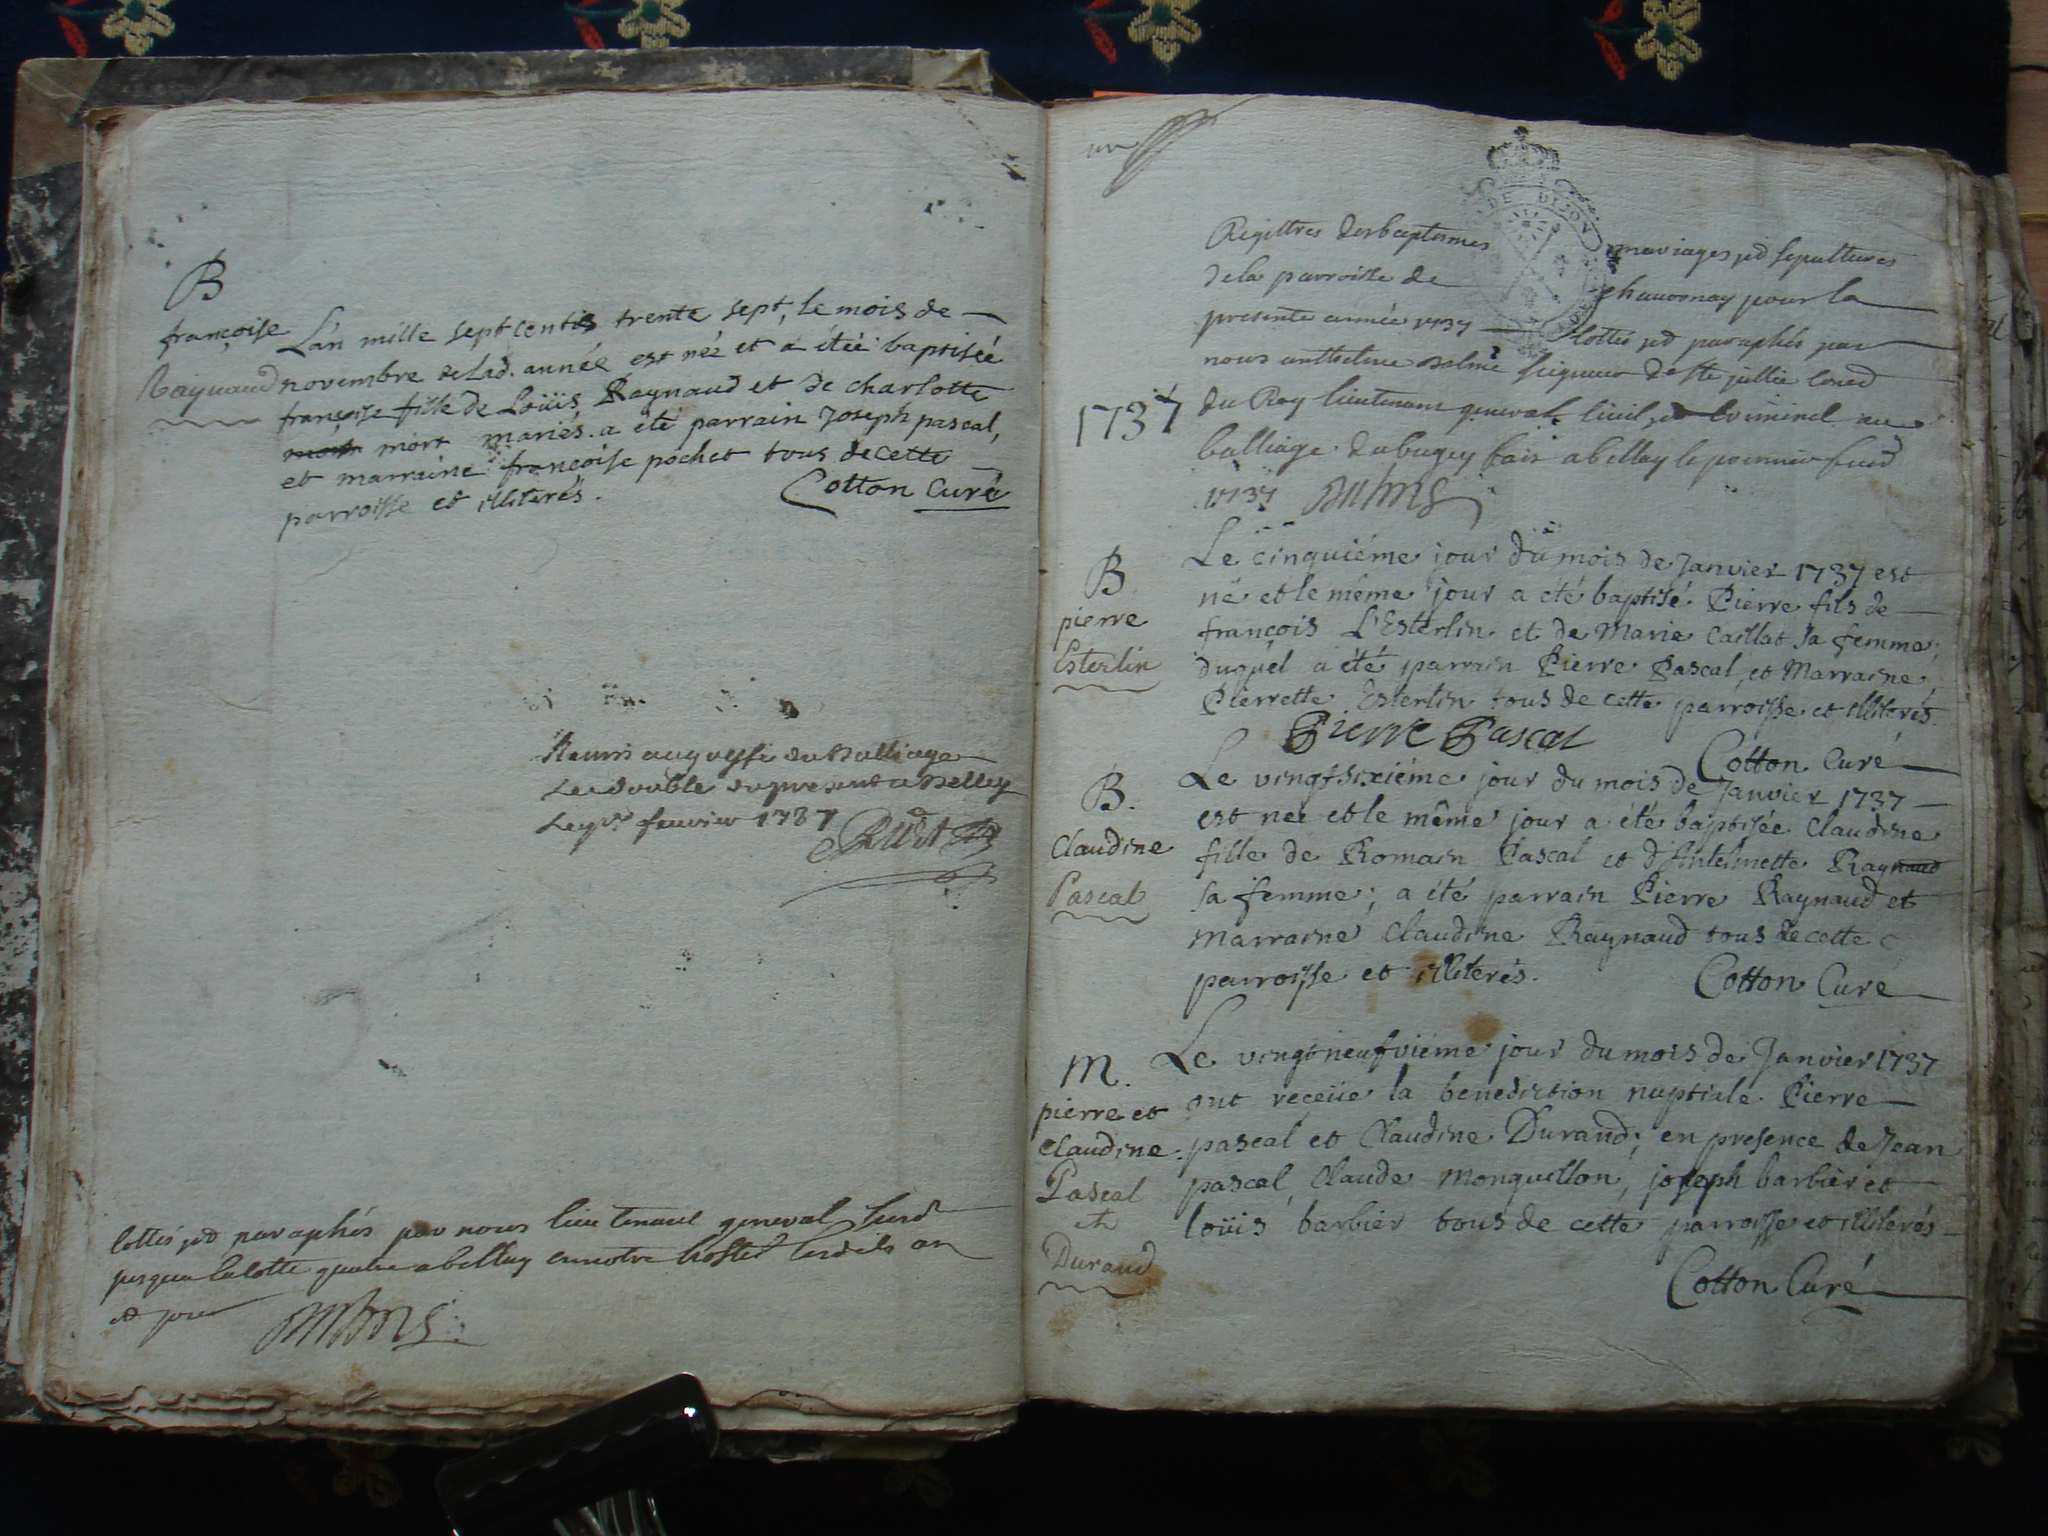 B
françoise
Raynaud
L'an mille sept centis trente sept, le mois de
novembre de lad. année est néé et a étée baptisée
françoise fille de Loüis Raynaud et de charlotte
mort mariés. a été parrain Joseph pascal,
et marraine françoise pochet tous de cette
parroisse et illiterés. Cotton Curé
Remis au greffe du Balliage
Le double du present a Belley
Le pr feuvier 1737
cottés et paraphés par nous lieutenant general susd
jusqua la cotte quatre a belley en notre hostel lesdits an
et jour
un
DE DIJON
Registres des baptemes mariages et sepultures
de la parroisse de chavornay pour la
presente année 1737 Cottés et paraphés par
nous seigneur de Ste jullie Consr
du Roy lieutenant general Civil et Criminel au
balliage du bugey fait a belley le premier
1737
1737
B
pierre
Esterlin
Le cinquiéme jour du mois de Janvier 1737 est
né et le même jour a été baptisé Pierre fils de
françois L'Esterlin et de Marie Caillat sa femme;
duquel a été parrain Pierre Pascal, et Marraine
Pierrette Esterlin tous de cette parroisse et illiterés.
Pierre Pascal
Cotton Curé
B.
Claudine
Pascal
Le vingtsixiéme jour du mois de Janvier 1737
est neé et le même jour a été baptisée Claudine
fille de Romain Pascal et d'Antelmette Raynaud
sa femme; a été parrain Pierre Raynaud et
marraine Claudine Raynaud tous de cette
parroisse et illiterés. Cotton Curé
M.
pierre et
Claudine
Pascal
et
Durand
Le vingt neufviéme jour du mois de Janvier 1737
ont receüe la benediction nuptiale Pierre
pascal et Claudine Durand; en presence de Jean
pascal, Claude Monguillon, joseph barbier et
loüis barbier tous de cette parroisse et illiterés
Cotton Curé